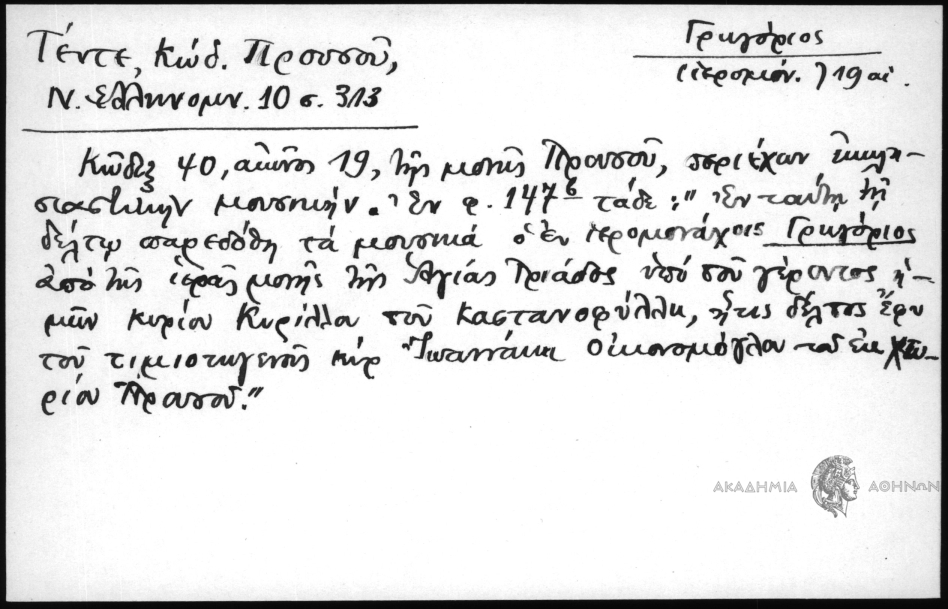 Τέντε, Κώδ. Προυσοῦ,
Ν. Ἑλληνομν. 10 σ. 313
Γρηγόριος
(ἱερομόν.) 19 αἰ.
Κῶδιξ 40, αἰῶνος 19, τῆς μονῆς Προυσοῦ, περιέχων ἐκκλη-
σιαστικὴν μουσικήν. Ἐν φ. 147β τάδε: "Ἐν ταύτῃ τῇ
δέλτῳ παρεδόθη τὰ μουσικά ὁ ἐν ἱερομονάχοις Γρηγόριος
ἀπὸ τῆς ἱερᾶς μονῆς τῆς Ἁγίας Τριάδος ὑπὸ τοῦ γέροντος ἡ-
μῶν κυρίου Κυρίλλου τοῦ Καστανοφύλλη, ἥτις δέλτος
τοῦ τιμιοτ κὺρ Ἰωαννάκη Οἰκονομόγλου τοῦ ἐκ χω-
ρίου Προυσοῦ."
ΑΚΑΔΗΜΙΑ ΑΘΗΝΩΝ